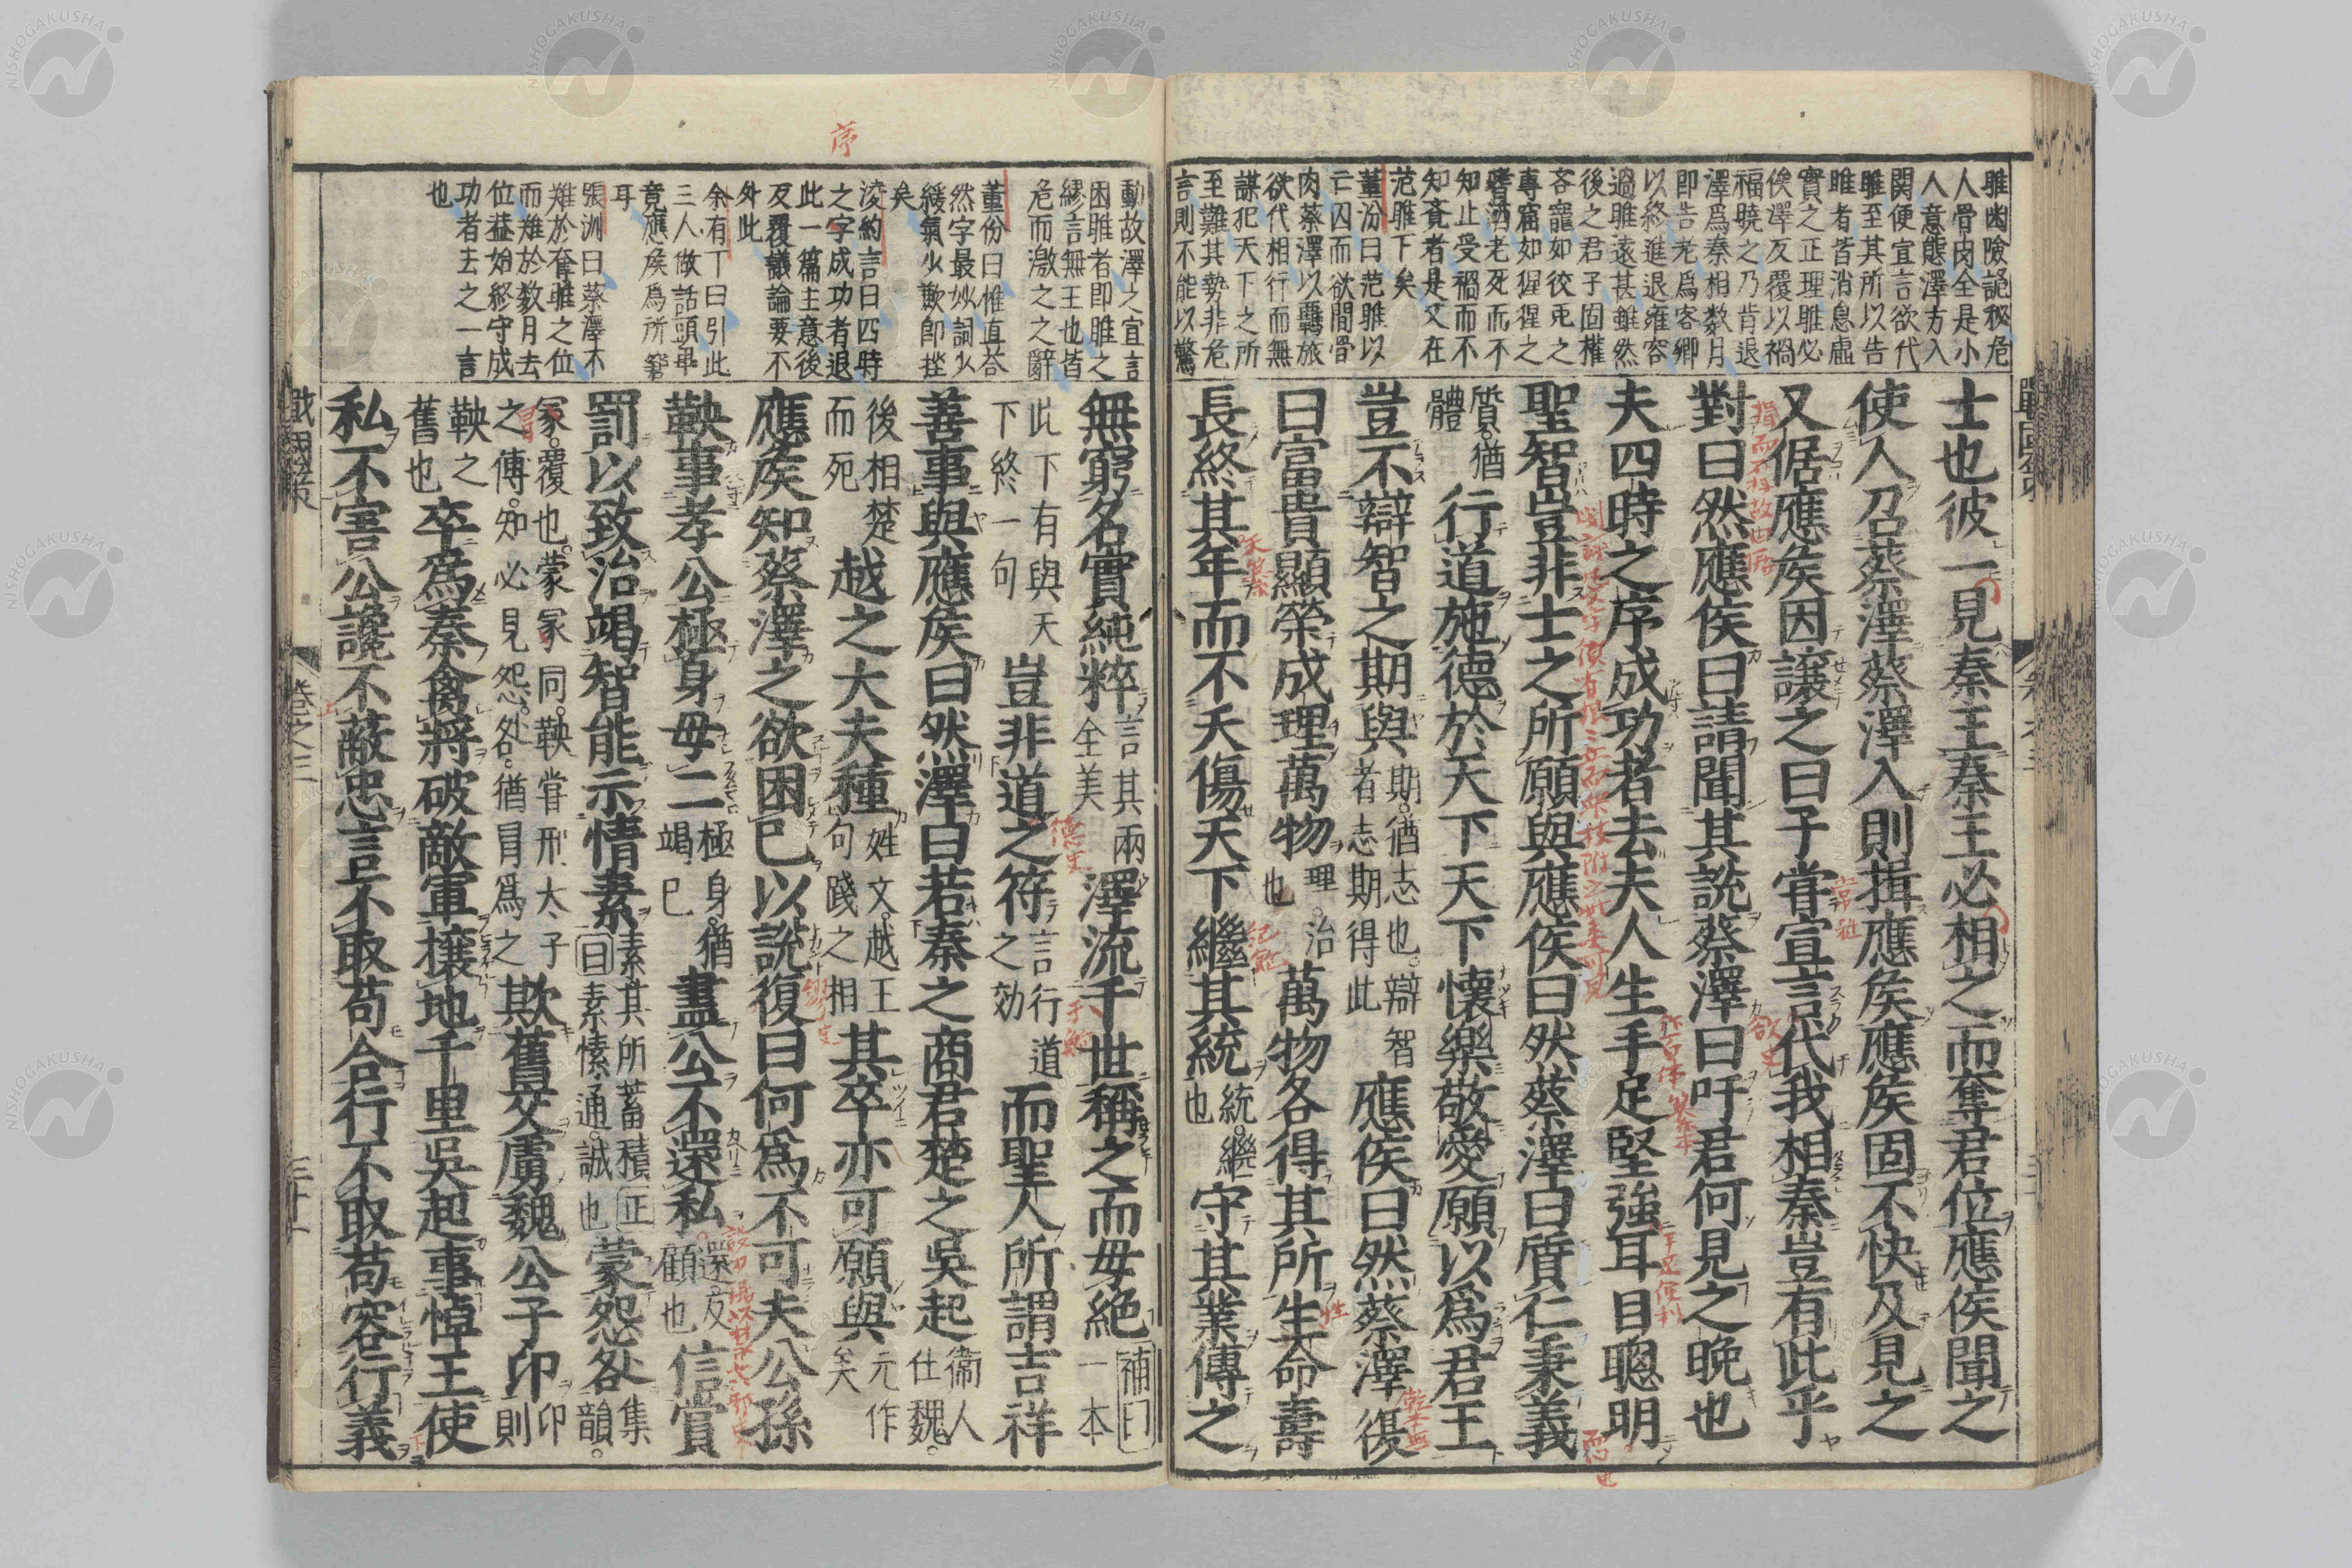 雎幽險詭秘危
人骨肉全是小
人意態澤方入
関便宜言欲代
雎至其所以告
雎者皆消息盈
實之正理雎必
俟澤反覆以禍
福曉之乃肯退
澤爲秦相数月
即告老爲客卿
以終進退雍容
過雎遠甚雖然
後之君子固權
吝寵如狡兎之
專窟如猩猩之
嗜酒老死而不
知止受禍而不
知斉者是又在
范雎下矣
董汾曰范雎以
亡囚而欲間骨
肉蔡澤以羈旅
欲代相行而無
謀犯天下之所
至難其勢非危
言則不能以驚
士也彼一見秦王秦王必相之而奪君位應侯聞之
使人召蔡澤蔡澤入則揖應侯應侯固不快及見之
又倨應侯因讓之曰子甞宣言代我相秦豈有此乎
對曰然應侯曰請聞其說蔡澤曰吁君何見之晚也
夫四時之序成功者去夫人生手足堅強耳目聰明
聖智豈非士之所願與應侯曰然蔡澤曰質仁秉義
質猶體行道施德於天下天下懷樂敬愛願以爲君王
豈不辯智之期與期猶志也辯智者志期得此應侯曰然蔡澤復
曰富貴顯榮成理萬物理治也萬物各得其所生命壽
長終其年而不夭傷天下繼其統統繼也守其業傳之
動故澤之宜言
困雎者即雎之
繆言無王也皆
危而激之之辭
董份曰惟直荅
然字最妙詞少
緩氣少歉即挫
矣
淩約言曰四時
之字成功者退
此一篇主意後
反覆議論要不
外此
余有丁曰引此
三人做話頭畢
竟應侯爲所窘
耳
張洲曰蔡澤不
難於奪雎之位
而難於数月去
位葢始終守成
功者去之一言
也
序
無窮名實純粹言其兩全美澤流千世稱之而毋絶補曰一本
此下有與天下終一句豈非道之符言行道之効而聖人所謂吉祥
善事與應侯曰然澤曰若秦之商君楚之吳起衛人仕魏
後相楚而死越之大夫種姓文越王句踐之相其卒亦可願與元作矣
應侯知蔡澤之欲困已以說復曰何爲不可夫公孫
鞅事孝公極身毋二極身猶竭已盡公不還私還反顧也信賞
罰以致治竭智能示情素素其所蓄積正曰素愫通誠也蒙怨咎集韻
冡覆也蒙冡同鞅甞刑太子之傅知必見怨咎猶冐爲之欺舊交虜魏公子卬卬則
鞅之舊也卒爲秦禽將破敵軍攘地千里吳起事悼王使
私不害公讒不蔽忠言不取苟合行不取苟容行義
戰國策
卷之三
三十一